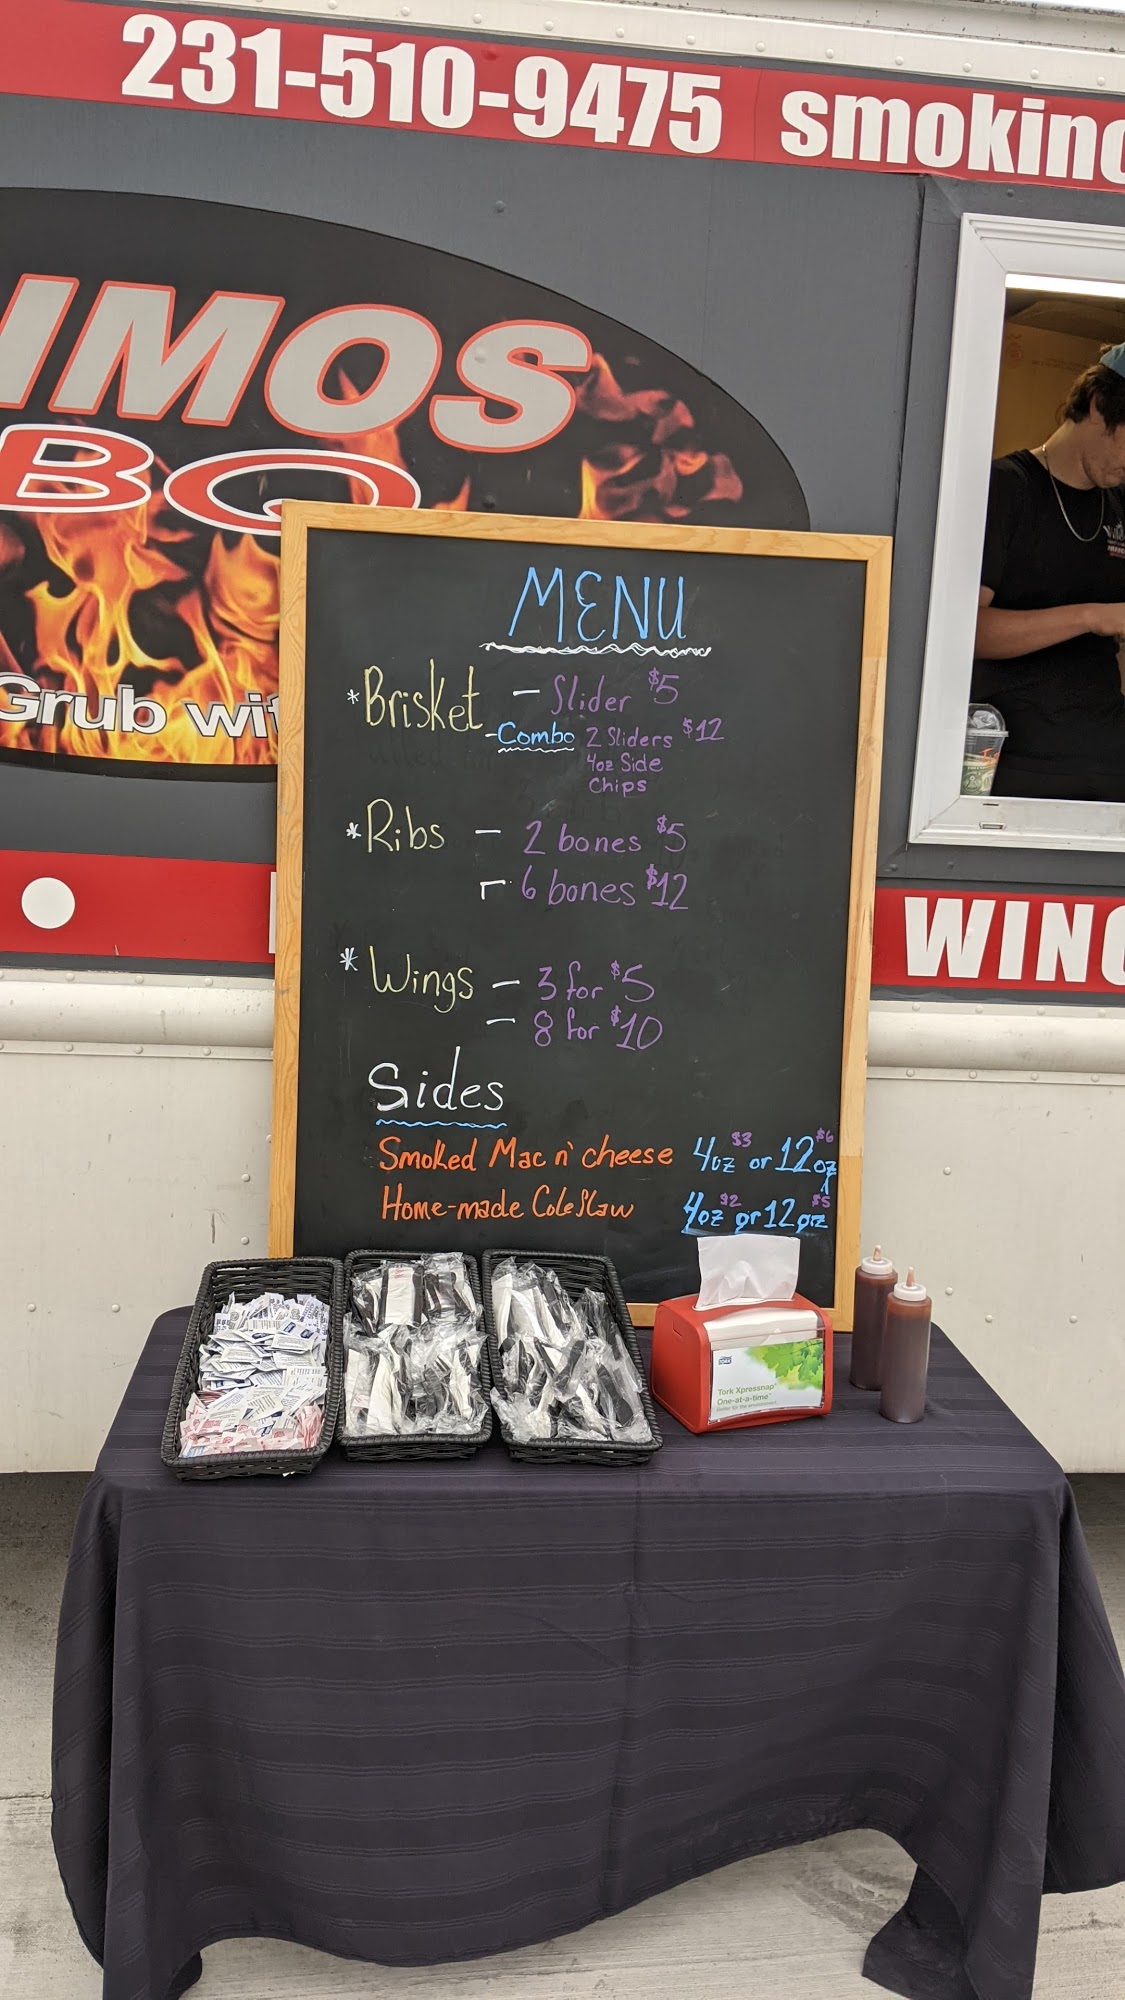 231-510-9475 smokin
IMOS
BQ
Grub wit
WING
MENU
*Brisket - Slider $5
-Combo 2 Sliders $12
4oz Side
Chips
*Ribs - 2 bones $5
- 6 bones $12
*Wings - 3 for $5
- 8 for $10
Sides
Smoked Mac n' cheese 4oz $3 or 12oz $6
Home-made Coleslaw 4oz $2 or 12oz $5
Tork Xpressnap®
One-at-a-time™